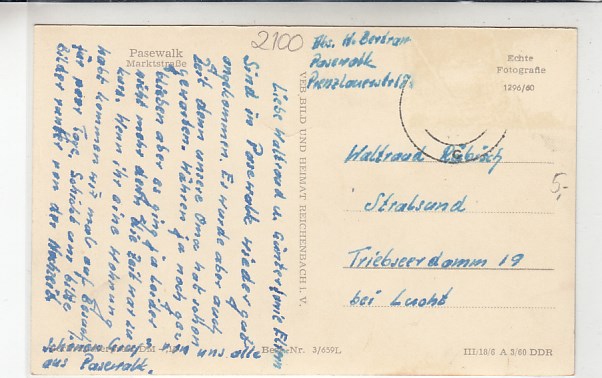 Pasewalk
Marktstraße
2100
Abs. W. Bertram
Pasewalk
Prenzlauerstr.
Echte
Fotografie
1296/60
Liebe Waltraud u. Günter sowie Eltern
Sind in Pasewalk wieder gut
angekommen. Es wurde aber auch
Zeit denn unsere Oma hat schon
gewartet. Wären ja noch gern
geblieben aber es ging ja leider
nicht mehr doch die Zeit war um
Wenn ihr eine Wohnung
habt kommen wir mal auf Besuch
für paar Tage. Schickt uns bitte
Bilder runter von der Hochzeit
Schönen Gruß von uns alle
aus Pasewalk.
VEB BILD UND HEIMAT REICHENBACH i. V.
Waltraud
Stralsund
Triebseerdamm 19
bei Lucht
5,-
Best.-Nr. 3/659L
III/18/6 A 3/60 DDR